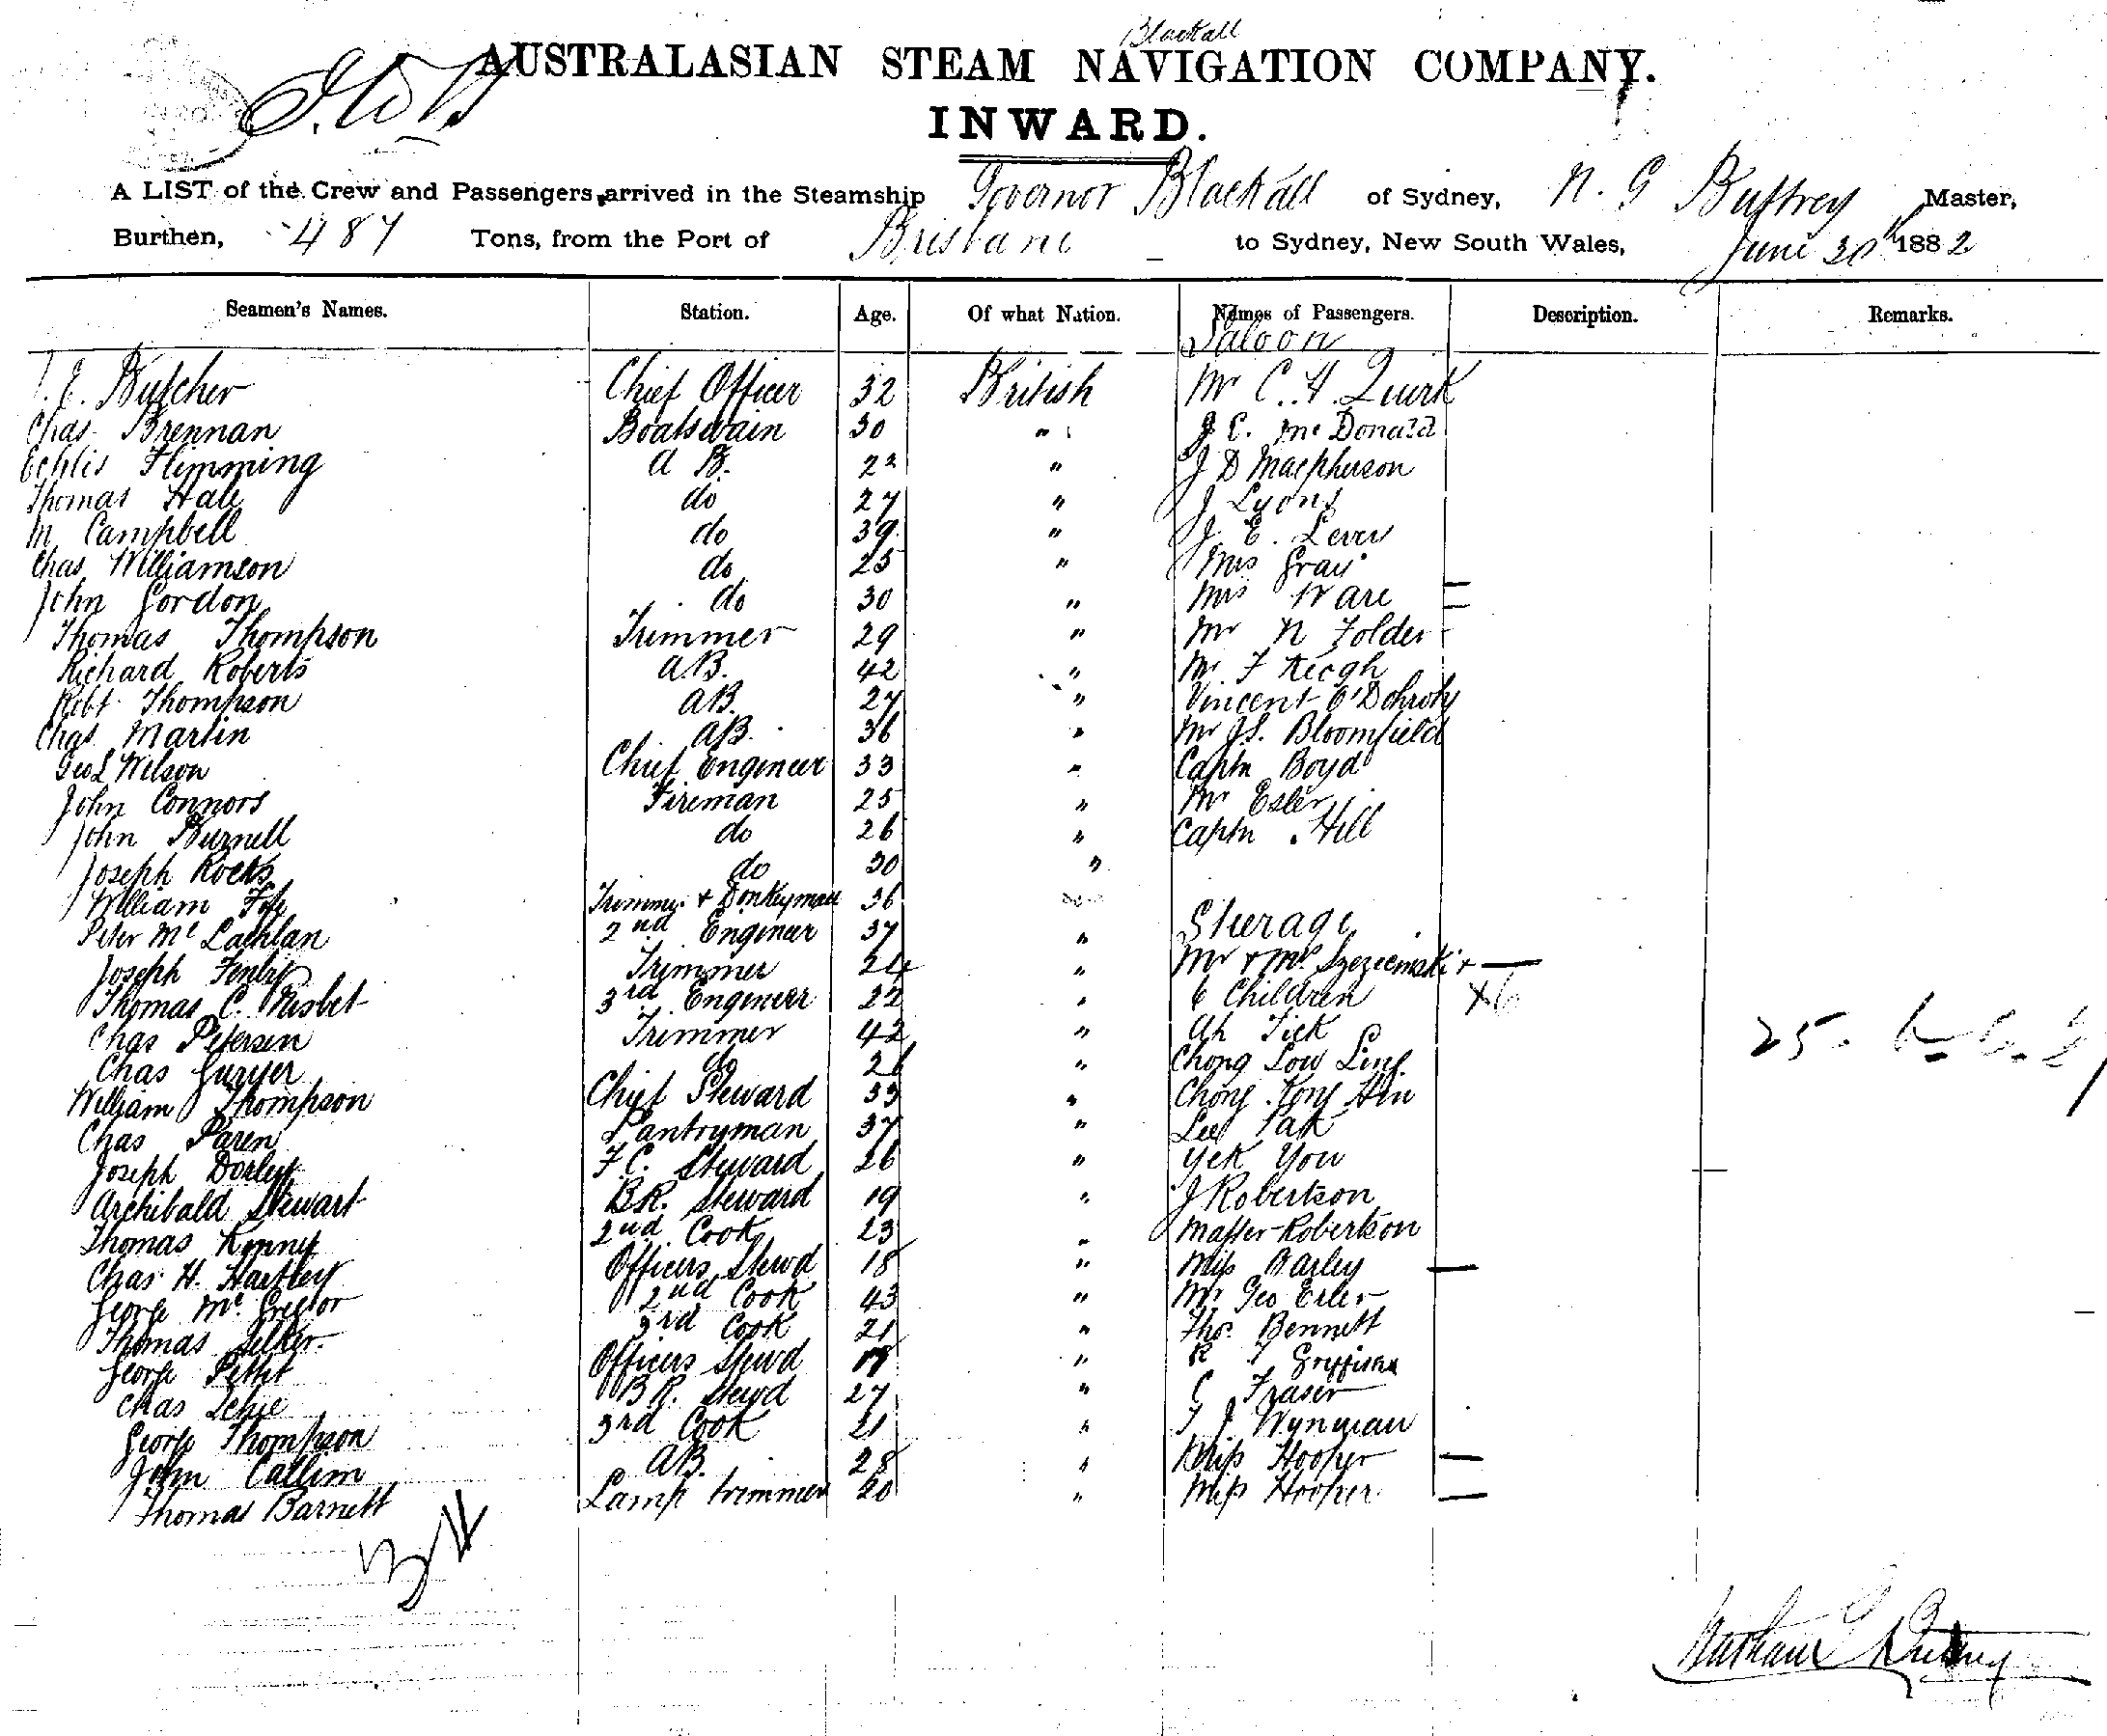 Blackall
AUSTRALASIAN STEAM NAVIGATION COMPANY.
INWARD.
A LIST of the Crew and Passengers arrived in the Steamship Governor Blackall of Sydney, N. G Master,
Burthen, 487 Tons, from the Port of Brisbane to Sydney, New South Wales, June 30th 1882
Seamen's Names. Station. Age. Of what Nation. Names of Passengers. Description. Remarks.
Saloon
E. Butcher Chief Officer 32 British Mr C. H. Quirk
Chas. Brennan Boatswain 30 " J. C. McDonald
Flimming A B. 22 " J D Macpherson
Thomas Hale do 27 " J Lyons
M Campbell do 39 " J. E. Lever
Chas Williamson do 25 " Mrs Gray
John Gordon do 30 " Mrs Ware
Thomas Thompson Trimmer 29 " Mr N Folder
Richard Roberts A.B. 42 " Mr F Keogh
Robt. Thompson AB. 27 " Vincent
Chas. Martin AB. 36 " Mr J.S. Bloomfield
Geo L Wilson Chief Engineer 33 " Captn Boyd
John Connors Fireman 25 " Mr Esler
John Burnell do 26 " Captn Hill
Joseph Rocks do 30 "
William Trimmer + Donkeyman 36 Steerage
Peter Mc Lachlan 2nd Engineer 37 " Mr & Mrs Szezeemski +
Joseph Trimmer 24 " 6 Children x6
Thomas C. Nisbet 3rd Engineer 22 " Ah Tick
Chas Petersen Trimmer 42 " Chong Low Ling
Chas do 26 " Chong Kong Hin
William Thompson Chief Steward 33 " Lee Pak
Chas Paren Pantryman 37 " Yek You
Joseph Dorley F.C. Steward 26 " J Robertson
Archibald Stewart B.R. Steward 19 " Master Robertson
Thomas Kenny 2nd Cook 23 " Miss Barley
Chas H. Hartley Officers Stewd 18 " Mr Geo Esler
George Mc Gregor 2nd Cook 43 " Thos. Bennett
Thomas Selker 3rd Cook 21 " R
George Pettit Officers Stewd " C Fraser
Chas B.R. Stewd 27 " T J Wynyian
George Thompson 3rd Cook 21 " Miss Hooper
John Callim AB. 28 " Miss Hooper
Thomas Barnett Lamp trimmer 20 "
25.